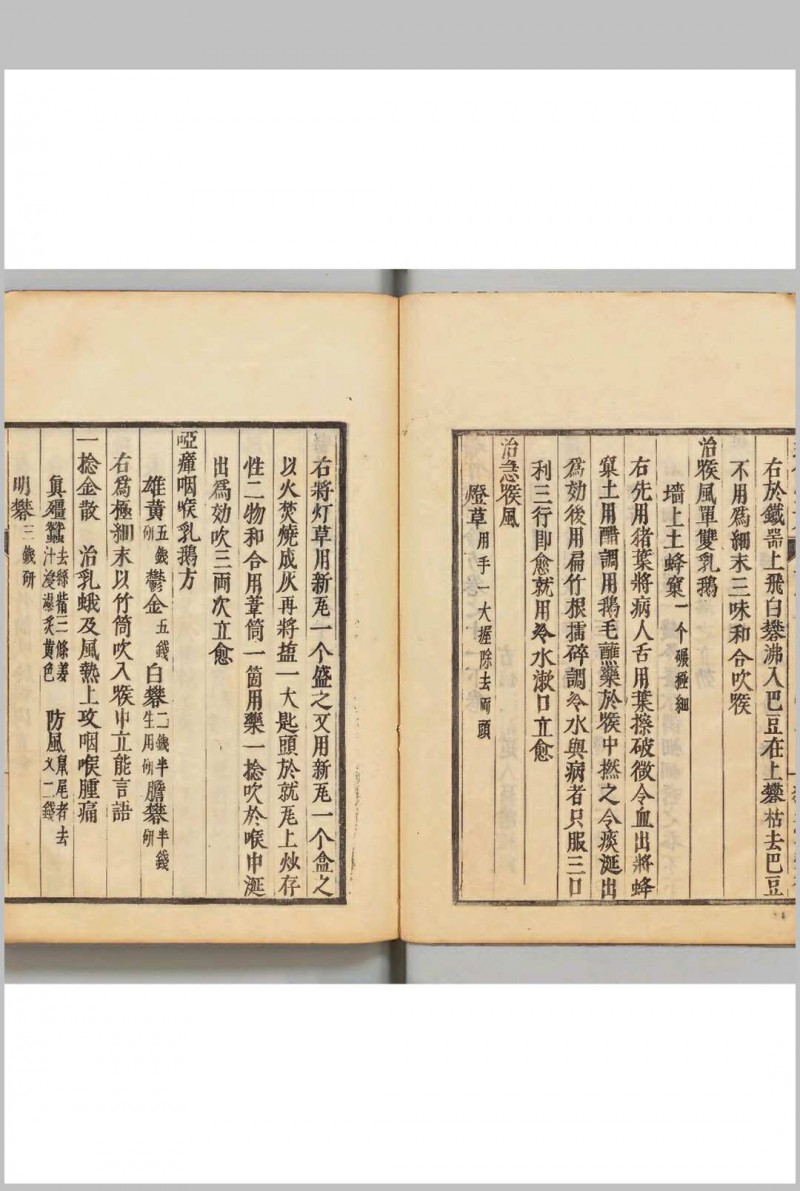 右於鐵器上飛白礬沸入巴豆在上礬枯去巴豆
不用爲細末三味和合吹喉
治喉風單雙乳鵝
墻上土蜂窠一个碾極細
右先用猪葉將病人舌用葉擦破微令血出將蜂
窠土用醋調用鵝毛蘸藥於喉中撚之令痰涎出
爲効後用扁竹根擂碎調冷水與病者只服三口
利三行即愈就用冷水漱口立愈
治急喉風
燈草用手一大握除去兩頭
右將灯草用新瓦一个盛之又用新瓦一个盒之
以火焚燒成灰再將塩一大匙頭於就瓦上炒存
性二物和合用葦筒一箇用藥一捻吹於喉中涎
出爲効吹三兩次立愈
啞瘴咽喉乳鵝方
雄黃五錢研 鬱金五錢 白礬二錢半生用研 膽礬半錢研
右爲極細末以竹筒吹入喉中立能言語
一捻金散 治乳蛾及風熱上攻咽喉腫痛
眞殭蠶去絲觜三條姜汁浸濕炙黃色 防風鼠尾者去乂二錢
明礬三錢研